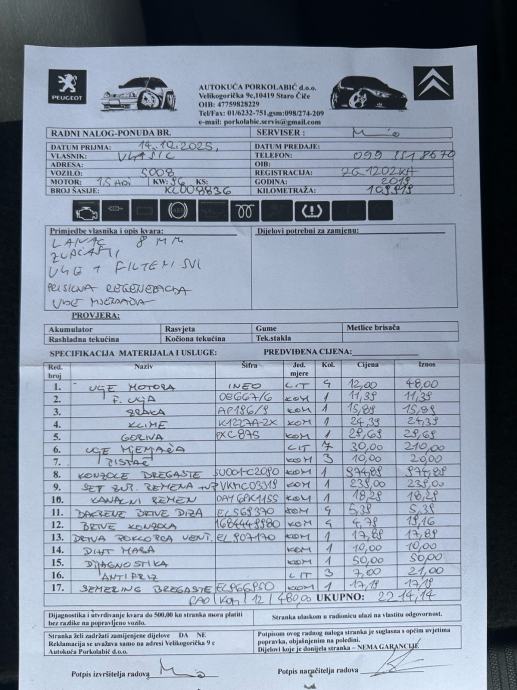 PEUGEOT
CITROËN
AUTOKUĆA PORKOLABIĆ d.o.o.
Velikogorička 9c,10419 Staro Čiče
OIB: 47759828229
Tel/Fax: 01/6232-751,gsm:098/274-209
e-mail: porkolabic.servis@gmail.com
RADNI NALOG-PONUDA BR. SERVISER :
DATUM PRIJMA: 14.10.2025. DATUM PREDAJE:
VLASNIK: VLASIC TELEFON:
ADRESA: OIB:
VOZILO: 5008 REGISTRACIJA: ZG 1202KH
MOTOR: 1.5 HDI KW: 96 KS: GODINA: 2019
BROJ ŠASIJE: KL008836 KILOMETRAŽA:
Primjedbe vlasnika i opis kvara: Dijelovi potrebni za zamjenu:
LANAC 8 MM
ZUPČASTI
ULJE + FILTERI SVI
PRISILNA REGENERACIJA
ULJE MJENJAČA
PROVJERA:
Akumulator Rasvjeta Gume Metlice brisača
Rashladna tekućina Kočiona tekućina Tek.stakla
SPECIFIKACIJA MATERIJALA I USLUGE: PREDVIĐENA CIJENA:
Red. broj Naziv Šifra Jed. mjere Kol. Cijena Iznos
1. ULJE MOTORA INEO LIT 4 12,00 48,00
2. F. ULJA OE667/6 KOM 1 11,39 11,39
3. ZRAKA AP196/9 KOM 1 15,89 15,89
4. KLIME K1227A-2X KOM 1 24,39 24,39
5. GORIVA PXC875 KOM 1 29,69 29,69
6. ULJE MJENJAČA LIT 7 30,00 210,00
7. ČISTAČ KOM 2 10,00 20,00
8. KOMPLET BREGASTE KOM 1 974,89 974,89
9. SET ZUP. REMENA + VP VKMC03319 KOM 1 239,00 239,00
10. KANALNI REMEN DAY6PK1155 KOM 1 18,29 18,29
11. EL569370 KOM 1 5,39 5,39
12. 1684449980 KOM 4 4,79 19,16
13. VENT. EL907170 KOM 1 17,89 17,89
14. DIHT MASA KOM 1 10,00 10,00
15. DIJAGNOSTIKA KOM 1 50,00 50,00
16. ANTIFRIZ LIT 3 7,00 21,00
17. SEMERING BREGASTE EL966950 KOM 1 17,19 17,19
RAD / KOM / 12 / 480,00 UKUPNO: 2214,14
Dijagnostika i utvrđivanje kvara do 500,00 kn stranka mora platiti
bez razlike na popravljeno vozilo.
Stranka ulaskom u radionicu ulazi na vlastitu odgovornost.
Stranka želi zadržati zamijenjene dijelove DA NE
Reklamacija se uvažava samo na adresi Velikogorička 9 c
Autokuća Porkolabić d.o.o.
Potpisom ovog radnog naloga stranka je suglasna s općim uvjetima
popravka, objašnjenim na poleđini.
Dijelovi koje je donijela stranka – NEMA GARANCIJE
Potpis izvršitelja radova Potpis naručitelja radova